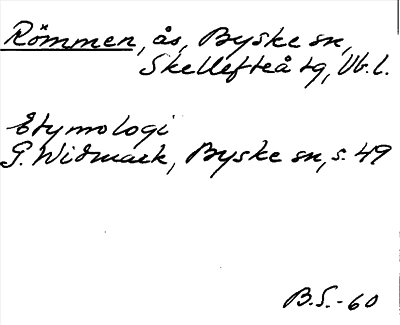 Römmen, ås, Byske sn,
Skellefteå tg, Vb. l.
Etymologi
G. Widmark, Byske sn, s. 49
B.S.-60